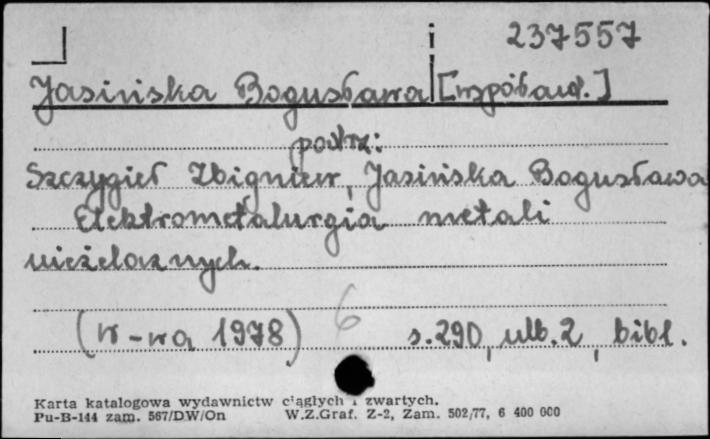 237557
Jasińska Bogusława [współaut.]
patrz:
Szczygieł Zbigniew, Jasińska Bogusława
Elektrometalurgia metali
nieżelaznych.
(W-wa 1978) 6 s.290, nlb.2, bibl.
Karta katalogowa wydawnictw ciągłych i zwartych.
Pu-B-144 zam. 567/DW/On W.Z.Graf. Z-2, Zam. 502/77, 6 400 000